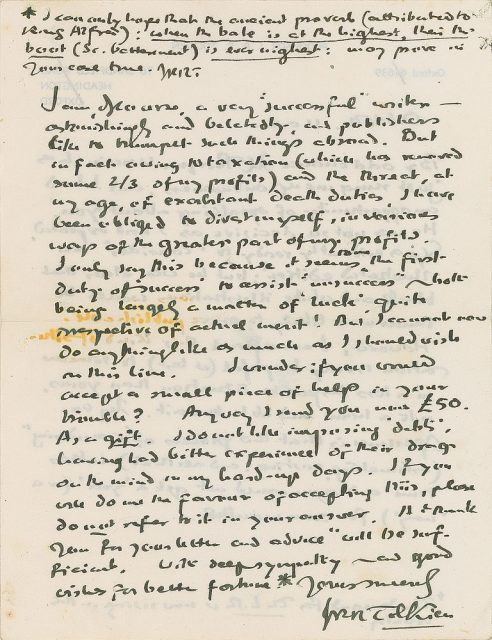 * I can only hope that the ancient proverb (attributed to
King Alfred): when the bale is at the highest, then the
boot (sc. betterment) is ever nighest: may prove in
your case true. JRRT.
I am, of course, a very "successful" writer —
astonishingly and belatedly, and publishers
like to trumpet such things abroad. But
in fact owing to taxation (which has removed
some 2/3 of my profits) and the threat, at
my age, of exorbitant death duties, I have
been obliged to divest myself, in various
ways of the greater part of my profits.
I only say this because it seems the first
duty of 'success' to assist 'unsuccess' – both
being largely a matter of 'luck' quite
irrespective of actual merit! But I cannot now
do anything like as much as I should wish
on this line. I wonder if you would
accept a small piece of help in your
trouble? Anyway I send you now £50.
As a gift. I do not like imposing 'debts',
having had bitter experience of their drag
on the mind in my hard-up days. If you
will do me the favour of accepting this, please
do not refer to it in your answer. A "thank
you for your letter and advice" will be suf-
ficient. With deep sympathy – and good
wishes for better fortune * Yours sincerely
JRR Tolkien